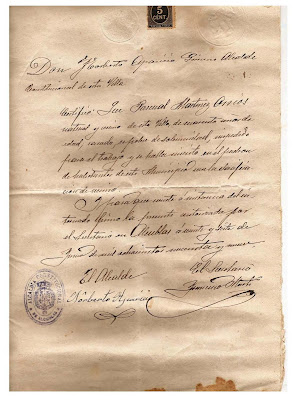 5 CENT.
Don Norberto Aparicio Gimeno Alcalde
Constitucional de esta Villa.
Certifico: Que Pascual Martinez
natural y vecino de esta Villa de cincuenta años de
edad, casado, es pobre de solemnidad, impedido
para el trabajo y se halla inscrito en el padron
de habitantes de este Municipio con la clasifica-
cion de vecino.
Y para que conste á instancia del in-
teresado firmo la presente autorizada por
el Secretario en Alcublas á veinte y siete de
Junio de mil ochocientos noventa y nueve.
El Alcalde
El Secretario
Norberto Aparicio
Francisco